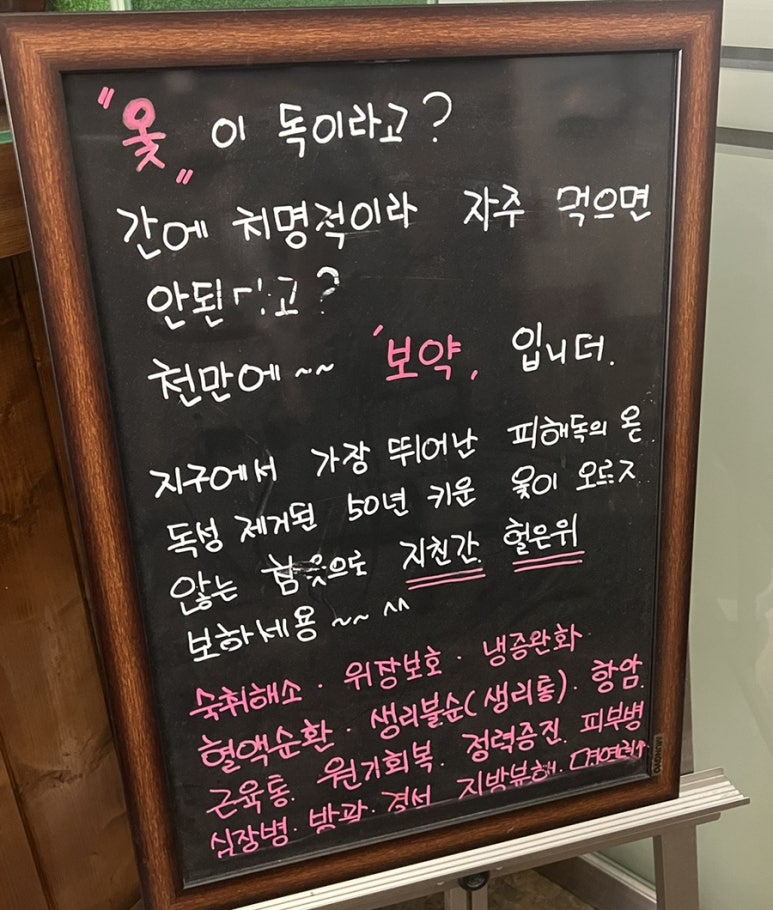 "옻" 이 독이라고?
간에 치명적이라 자주 먹으면
안된다고?
천만에~~ '보약, 입니더.
지구에서 가장 뛰어난 피해독의 옻
독성 제거된 50년 키운 옻이 오르지
않는 참옻으로 지친간 헐은위
보하세용~~^^
숙취해소 · 위장보호 · 냉증완화
혈액순환 · 생리불순(생리통) · 항암
근육통 · 원기회복 · 정력증진 · 피부병
심장병 · 방광 · 결석 · 지방분해 ·